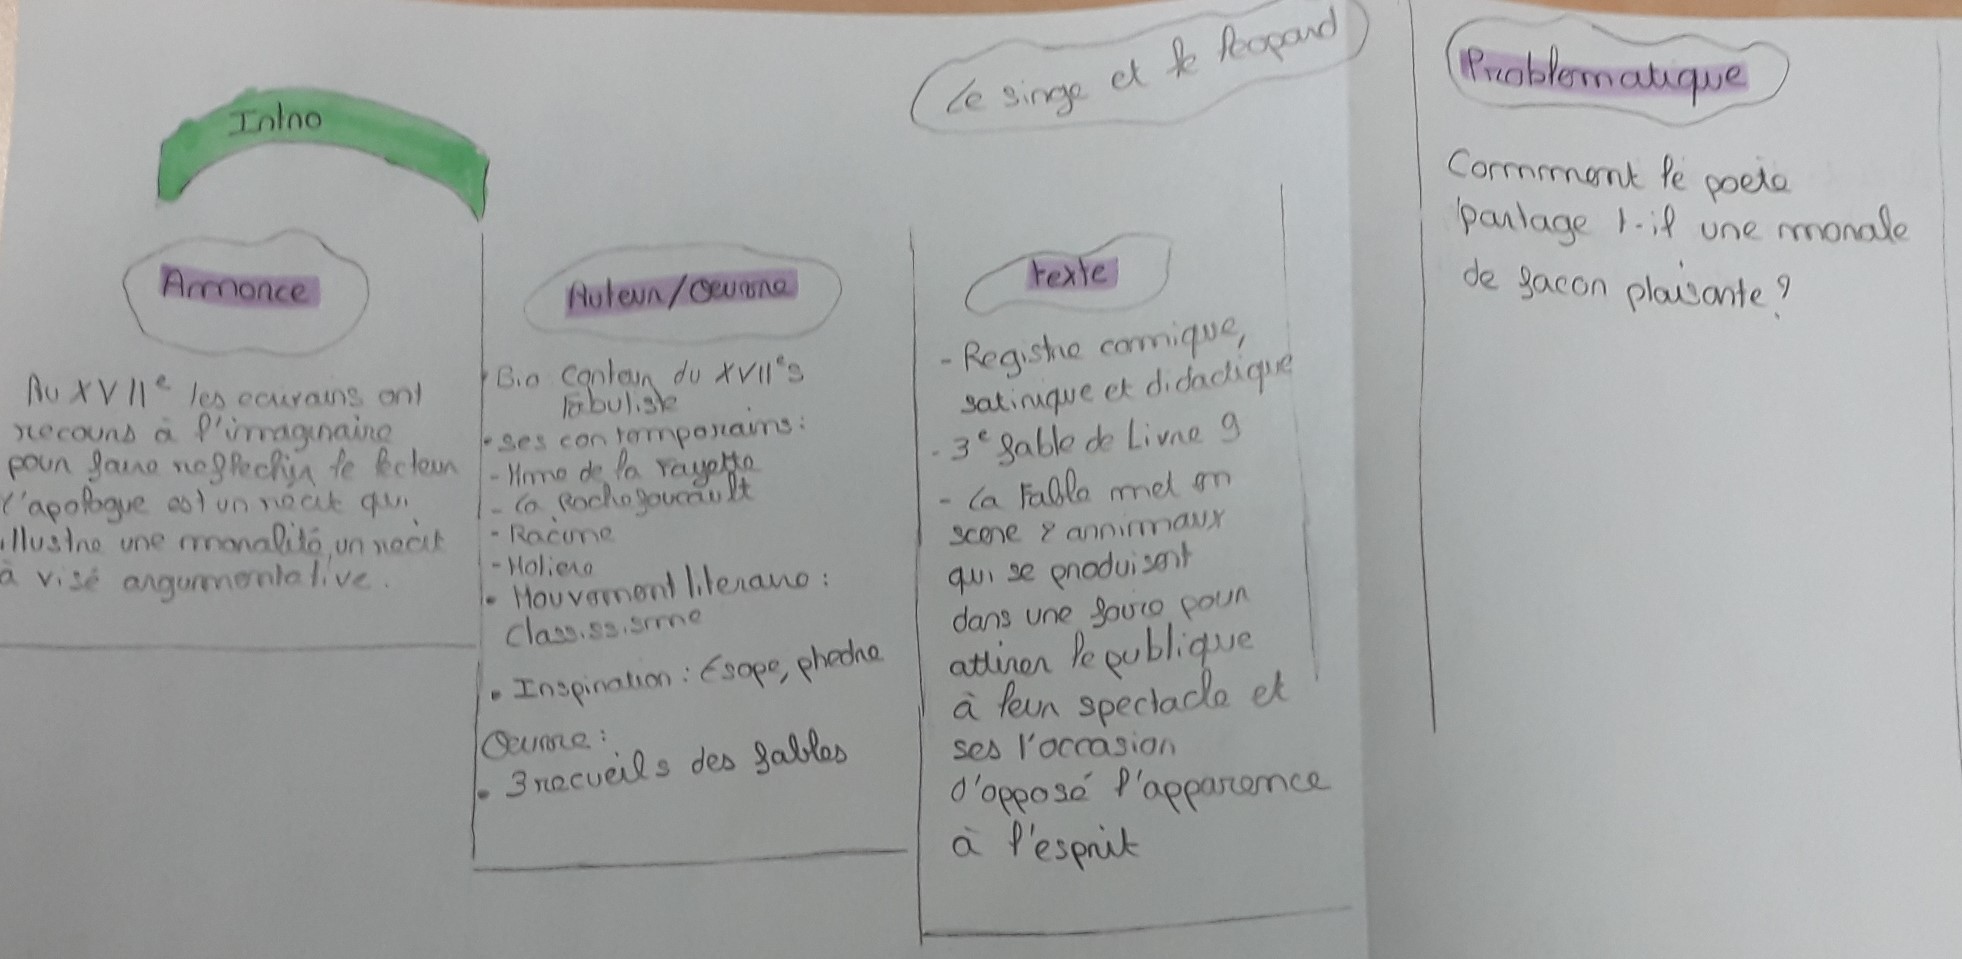 Intro
Le singe et le leopard
Annonce
Au XVIIe les ecrivains ont
recours à l'imaginaire
pour faire reflechir le lecteur
l'apologue est un recit qui
illustre une moralité, un recit
à visé argumentative.
Auteur/Oeuvre
Bio Conteur du XVIIe s
Fabuliste
• ses contemporains:
- Mme de la Fayette
- La Rochefoucault
- Racine
- Moliere
• Mouvement literare:
Classissisme
• Inspiration: Esope, phedre
Oeuvre:
• 3 recueils des fables
texte
- Registre comique,
satirique et didactique
- 3e fable de Livre 9
- La Fable met en
scene 2 annimaux
qui se produisent
dans une foire pour
attirer le publique
à leur spectacle et
ses l'occasion
d'opposé l'apparence
à l'esprit
Problematique
Commment le poete
partage t-il une morale
de facon plaisante?